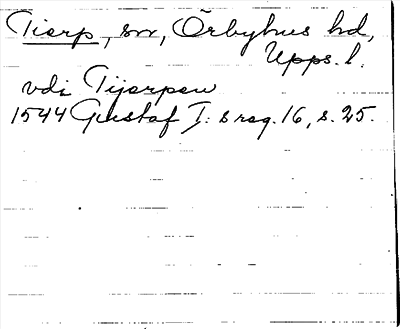 Tierp, sn, Örbyhus hd,
Upps. l.
vdi Tijerpen
1544 Gustaf I:s reg. 16, s. 25.